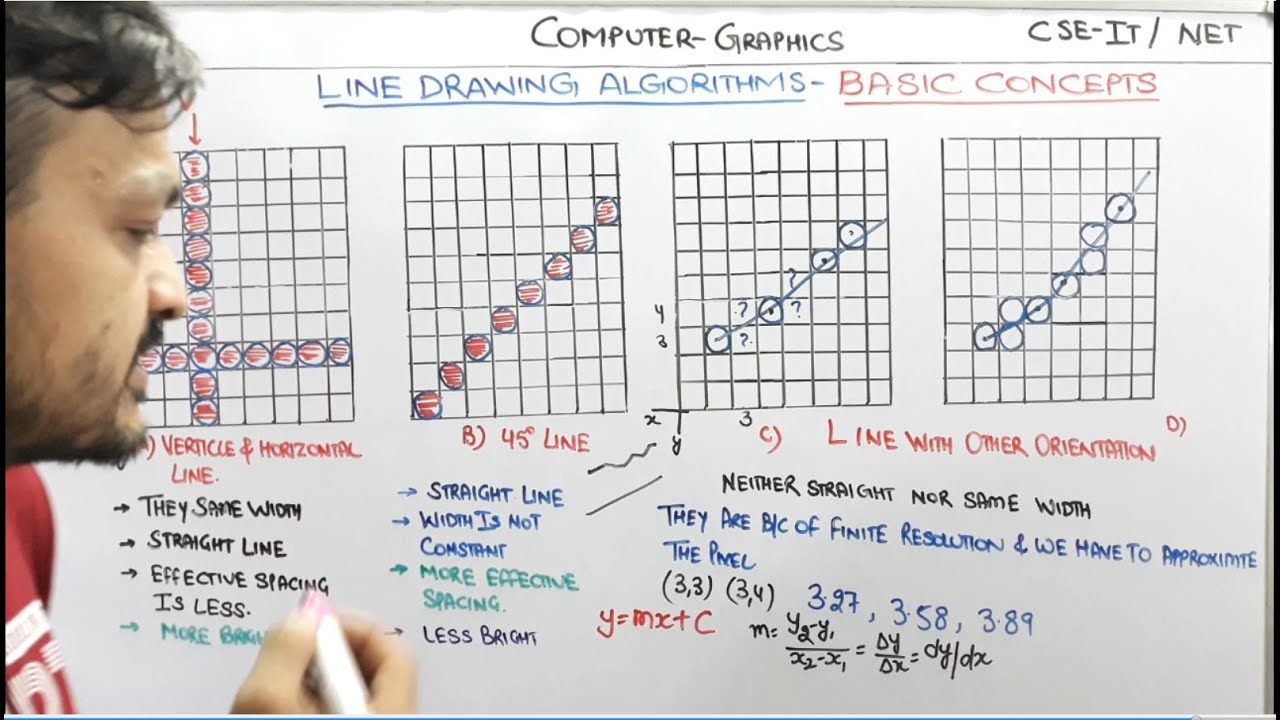 COMPUTER-GRAPHICS
CSE-IT / NET
LINE DRAWING ALGORITHMS- BASIC CONCEPTS
) VERTICLE & HORIZONTAL
LINE.
→ THEY SAME WIDTH
→ STRAIGHT LINE
→ EFFECTIVE SPACING
IS LESS.
→ MORE
B) 45° LINE
→ STRAIGHT LINE
→ WIDTH IS NOT
CONSTANT
→ MORE EFFECTIVE
SPACING.
→ LESS BRIGHT
?
4 ? ?
3 ?
x 3
y
C) LINE WITH OTHER ORIENTATION D)
NEITHER STRAIGHT NOR SAME WIDTH
THEY ARE B/C OF FINITE RESOLUTION & WE HAVE TO APPROXIMTE
THE PIXEL
(3,3) (3,4) 3.27, 3.58, 3.89
y=mx+C m= y₂-y₁ / x₂-x₁ = Δy/Δx = dy/dx